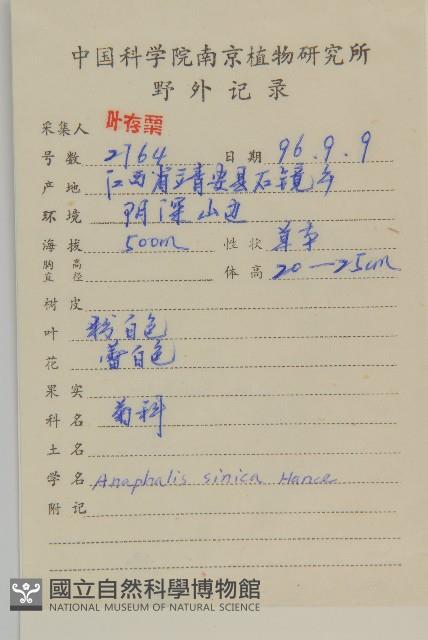 中国科学院南京植物研究所
野外记录
采集人 叶存粟
号数 2764 日期 96.9.9
产地 江西省靖安县石镜乡
环境 阴深山边
海拔 500m 性状 草本
胸高直径 体高 20—25cm
树皮
叶 粉白色
花 蕾白色
果实
科名 菊科
土名
学名 Anaphalis sinica Hance
附记
國立自然科學博物館
NATIONAL MUSEUM OF NATURAL SCIENCE